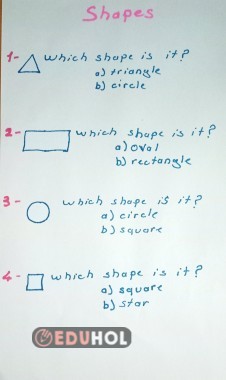 Shapes
1- which shape is it?
a) triangle
b) circle
2- which shape is it?
a) oval
b) rectangle
3- which shape is it?
a) circle
b) square
4- which shape is it?
a) square
b) star
EDUHOL